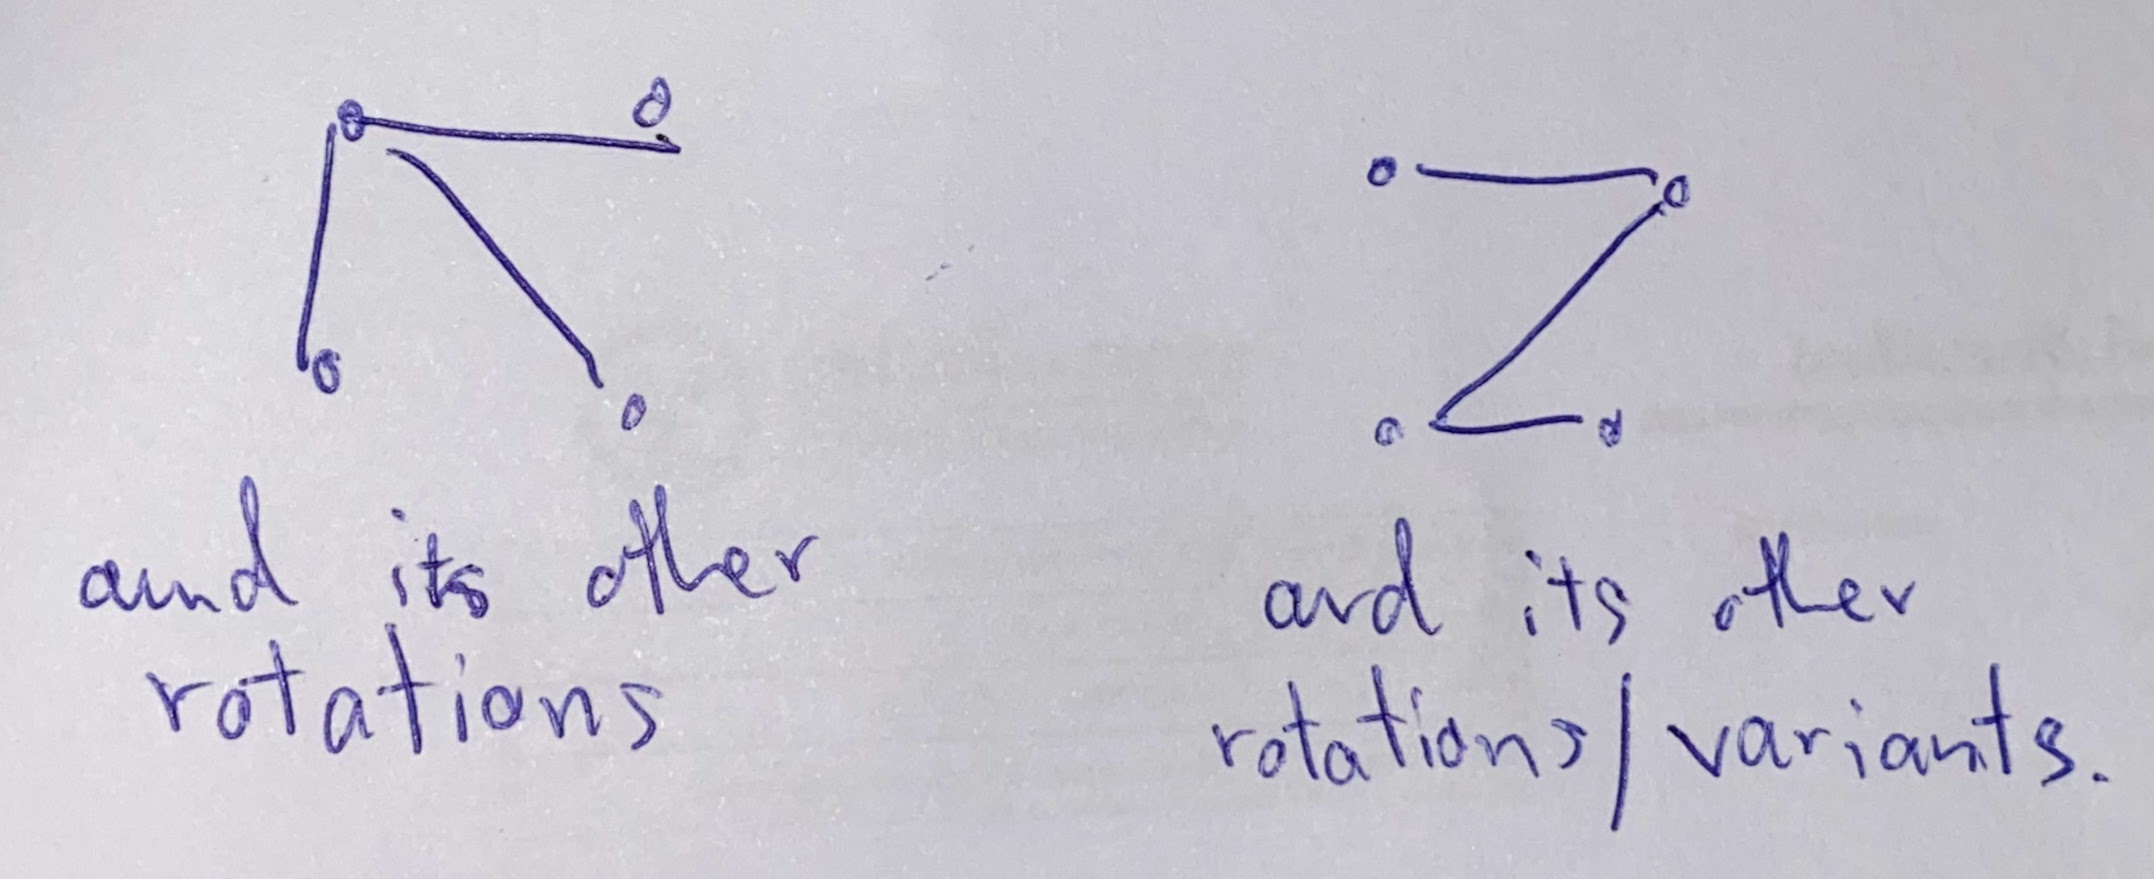 and its other
rotations
and its other
rotations/variants.